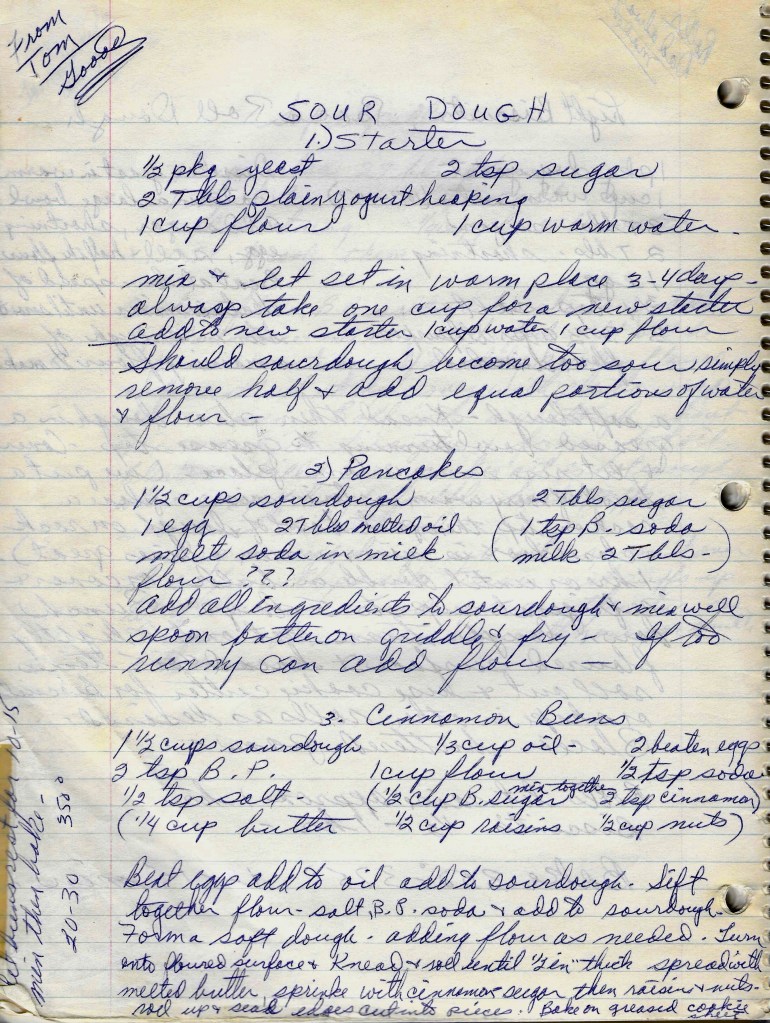 From
Tom
Goode
SOUR DOUGH
1.) Starter
1/2 pkg yeast 2 tsp sugar
2 Tbls plain yogurt heaping
1 cup flour 1 cup warm water.
mix & let set in warm place 3-4 days-
always take one cup for a new starter
add to new starter 1 cup water 1 cup flour
Should sourdough become too sour simply
remove half & add equal portions of water
& flour -
2) Pancakes
1 1/2 cups sourdough 2 Tbls sugar
1 egg 2 Tbls melted oil (1 tsp B. soda
melt soda in milk milk 2 Tbls-)
flour ???
add all ingredients to sourdough & mix well
spoon batter on griddle & fry - If too
runny can add flour -
3. Cinnamon Buns
1 1/2 cups sourdough 1/3 cup oil - 2 beaten eggs
2 tsp B.P. 1 cup flour 1/2 tsp soda
1/2 tsp salt - (1/2 cup B. sugar mix together 2 tsp cinnamon)
(1/4 cup butter 1/2 cup raisins 1/2 cup nuts)
Beat eggs add to oil add to sourdough. Sift
together flour - salt, B.P. soda & add to sourdough.
Form a soft dough - adding flour as needed. Turn
onto floured surface & Knead & roll until 1/2 in" thick spread with
melted butter, sprinke with cinnamon sugar then raisin & nuts-
roll up & seal edges cut into pieces. Bake on greased cookie
sheet
let buns rest for 10-15
min then bake -
20-30 350°